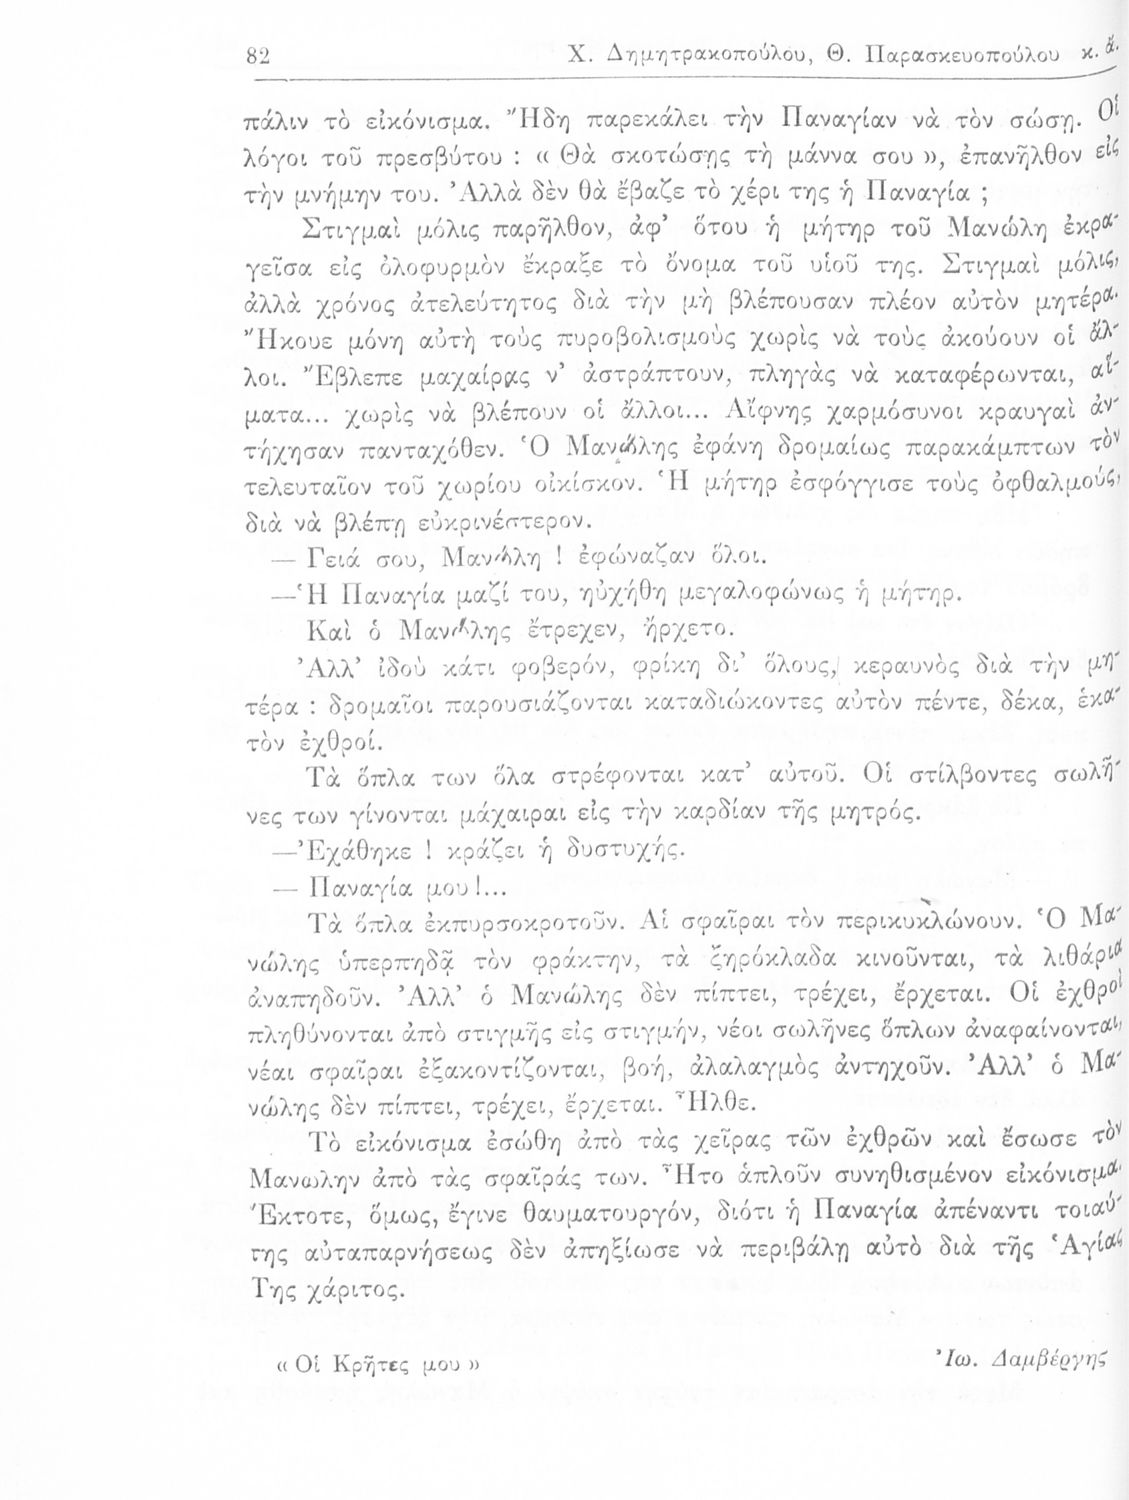 82 Χ. Δημητρακοπούλου, Θ. Παρασκευοπούλου κ. ἄ.
πάλιν τὸ εἰκόνισμα. Ἤδη παρεκάλει τὴν Παναγίαν νὰ τὸν σώσῃ. Οἱ
λόγοι τοῦ πρεσβύτου : « Θὰ σκοτώσῃς τὴ μάννα σου », ἐπανῆλθον εἰς
τὴν μνήμην του. Ἀλλὰ δὲν θὰ ἔβαζε τὸ χέρι της ἡ Παναγία ;
Στιγμαὶ μόλις παρῆλθον, ἀφ’ ὅτου ἡ μήτηρ τοῦ Μανώλη ἐκρα-
γεῖσα εἰς ὀλοφυρμὸν ἔκραξε τὸ ὄνομα τοῦ υἱοῦ της. Στιγμαὶ μόλις,
ἀλλὰ χρόνος ἀτελεύτητος διὰ τὴν μὴ βλέπουσαν πλέον αὐτὸν μητέρα.
Ἤκουε μόνη αὐτὴ τοὺς πυροβολισμοὺς χωρὶς νὰ τοὺς ἀκούουν οἱ ἄλ-
λοι. Ἔβλεπε μαχαίρας ν’ ἀστράπτουν, πληγὰς νὰ καταφέρωνται, αἵ-
ματα... χωρὶς νὰ βλέπουν οἱ ἄλλοι... Αἴφνης χαρμόσυνοι κραυγαὶ ἀν-
τήχησαν πανταχόθεν. Ὁ Μανώλης ἐφάνη δρομαίως παρακάμπτων τὸν
τελευταῖον τοῦ χωρίου οἰκίσκον. Ἡ μήτηρ ἐσφόγγισε τοὺς ὀφθαλμούς,
διὰ νὰ βλέπῃ εὐκρινέστερον.
— Γειά σου, Μανώλη ! ἐφώναζαν ὅλοι.
—Ἡ Παναγία μαζί του, ηὐχήθη μεγαλοφώνως ἡ μήτηρ.
Καὶ ὁ Μανώλης ἔτρεχεν, ἤρχετο.
Ἀλλ’ ἰδοὺ κάτι φοβερόν, φρίκη δι’ ὅλους, κεραυνὸς διὰ τὴν μη-
τέρα : δρομαῖοι παρουσιάζονται καταδιώκοντες αὐτὸν πέντε, δέκα, ἑκα-
τὸν ἐχθροί.
Τὰ ὅπλα των ὅλα στρέφονται κατ’ αὐτοῦ. Οἱ στίλβοντες σωλῆ-
νες των γίνονται μάχαιραι εἰς τὴν καρδίαν τῆς μητρός.
—Ἐχάθηκε ! κράζει ἡ δυστυχής.
— Παναγία μου!...
Τὰ ὅπλα ἐκπυρσοκροτοῦν. Αἱ σφαῖραι τὸν περικυκλώνουν. Ὁ Μα-
νώλης ὑπερπηδᾷ τὸν φράκτην, τὰ ξηρόκλαδα κινοῦνται, τὰ λιθάρια
ἀναπηδοῦν. Ἀλλ’ ὁ Μανώλης δὲν πίπτει, τρέχει, ἔρχεται. Οἱ ἐχθροὶ
πληθύνονται ἀπὸ στιγμῆς εἰς στιγμήν, νέοι σωλῆνες ὅπλων ἀναφαίνονται,
νέαι σφαῖραι ἐξακοντίζονται, βοή, ἀλαλαγμὸς ἀντηχοῦν. Ἀλλ’ ὁ Μα-
νώλης δὲν πίπτει, τρέχει, ἔρχεται. Ἦλθε.
Τὸ εἰκόνισμα ἐσώθη ἀπὸ τὰς χεῖρας τῶν ἐχθρῶν καὶ ἔσωσε τὸν
Μανωλην ἀπὸ τὰς σφαῖράς των. Ἦτο ἁπλοῦν συνηθισμένον εἰκόνισμα.
Ἔκτοτε, ὅμως, ἔγινε θαυματουργόν, διότι ἡ Παναγία ἀπέναντι τοιαύ-
της αὐταπαρνήσεως δὲν ἀπηξίωσε νὰ περιβάλῃ αὐτὸ διὰ τῆς Ἁγίας
Της χάριτος.
« Οἱ Κρῆτες μου » Ἰω. Δαμβέργης